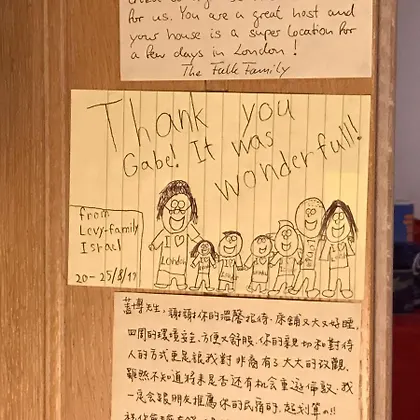 for us. You are a great host and
your house is a super location for
a few days in London!
The Fulle Family
Thank you
Gabe! It was
wonderfull!
from
Levy-family
Israel
20-25/8/17
I ♥
London
謝謝你的溫馨招待.床鋪又大又好睡,
四周的環境安全、方便又舒服.你的親切和對待
人的方式更是讓我對非裔有了大大的改觀,
雖然不知道將來是否還有機會重遊倫敦,我
一定會跟朋友推薦你的民宿的,超划算の!!